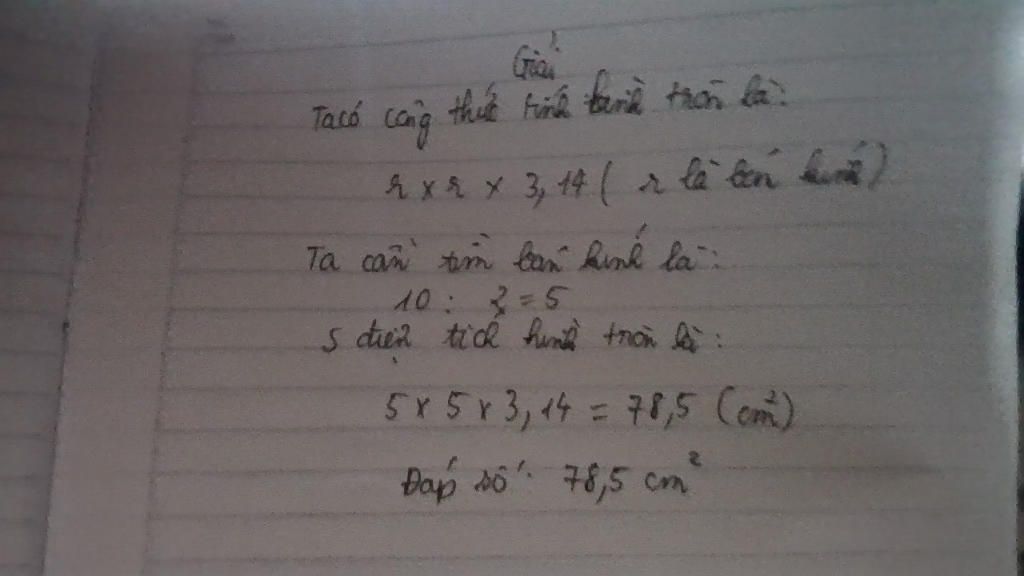 Giải
Ta có công thức tính hình tròn là:
r x r x 3,14 ( r là bán kính )
Ta cần tìm bán kính là:
10 : 2 = 5
S diện tích hình tròn là:
5 x 5 x 3,14 = 78,5 (cm²)
Đáp số: 78,5 cm²